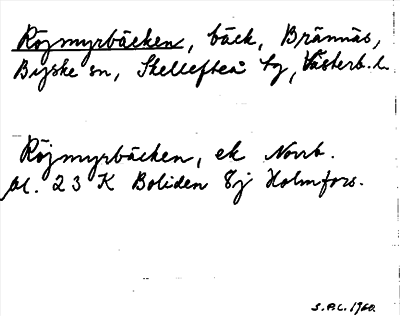 Röjmyrbäcken, bäck, Brännäs,
Byske sn, Skellefteå tg, Västerb. l.
Röjmyrbäcken, ek Norrb.
bl. 23 K Boliden 8j Holmfors.
S.A.L. 1960.